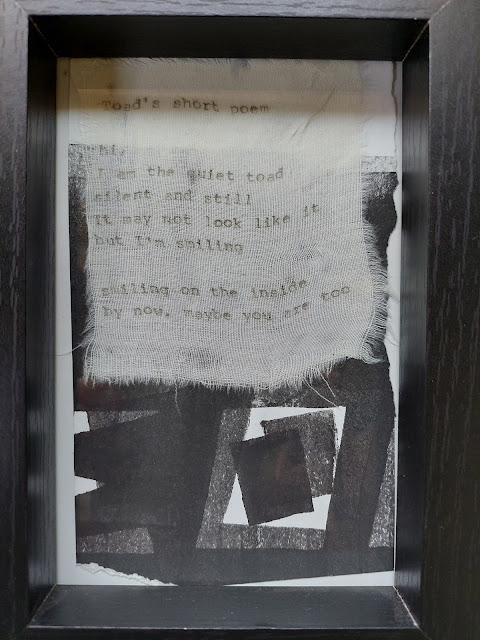 Toad's short poem
hi,
I am the quiet toad
silent and still
It may not look like it
but I'm smiling
smiling on the inside
by now. maybe you are too